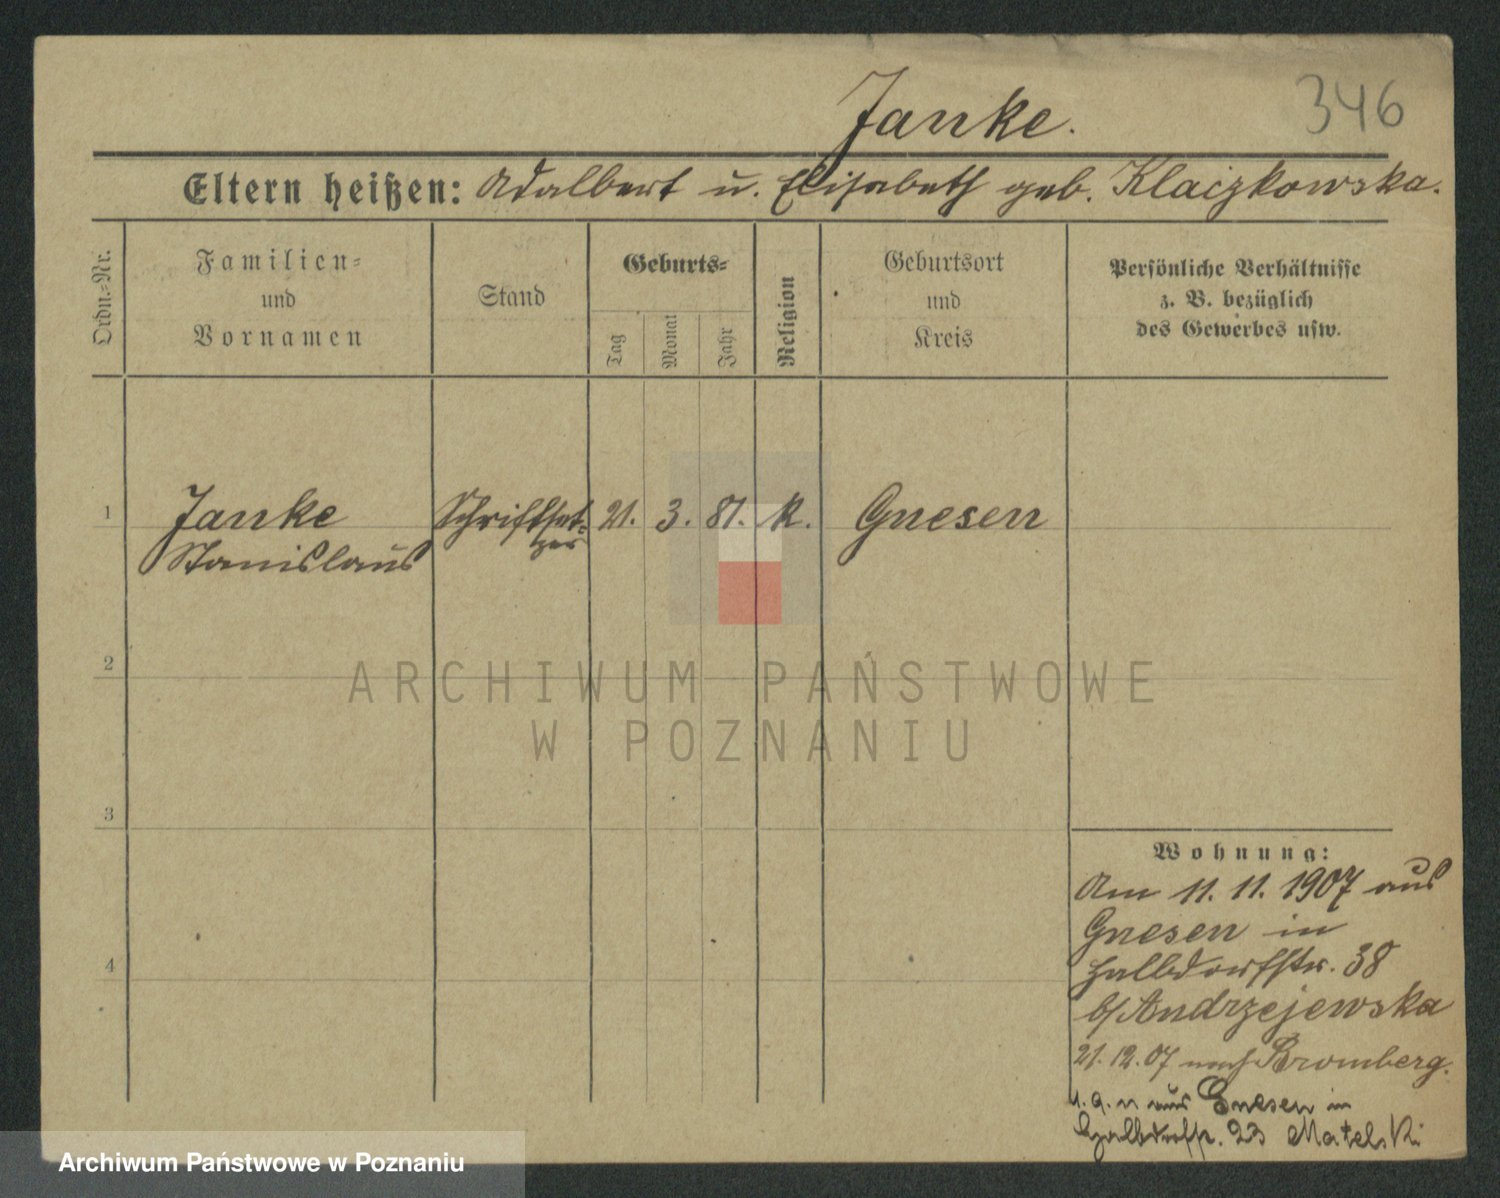 346
Janke.
Eltern heißen: Adalbert u. Elisabeth geb. Klaczkowska.
Ordn.-Nr.
Familien-
und
Vornamen
Stand
Geburts-
Tag
Monat
Jahr
Religion
Geburtsort
und
Kreis
Persönliche Verhältnisse
z. B. bezüglich
des Gewerbes usw.
1
Janke
Stanislaus
Schriftset-
zer
21. 3. 81. K.
Gnesen
2
3
4
Wohnung:
Am 11. 11. 1907 aus
Gnesen in
Halbdorfstr. 38
b/Andrzejewska
21.12.07 nach Bromberg.
aus Gnesen in
Halbdorfstr. 23 Matelski
ARCHIWUM PAŃSTWOWE
W POZNANIU
Archiwum Państwowe w Poznaniu